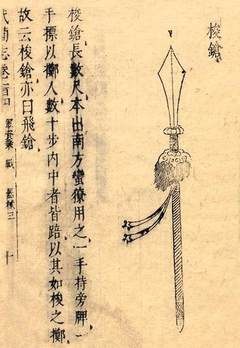 梭鎗
梭鎗長數尺本出南方蠻獠用之一手持旁牌一
手摽以擲人數十步內中者皆踣以其如梭之擲
故云梭鎗亦曰飛鎗
武備志卷一百 軍資乘 戰 器械三 十